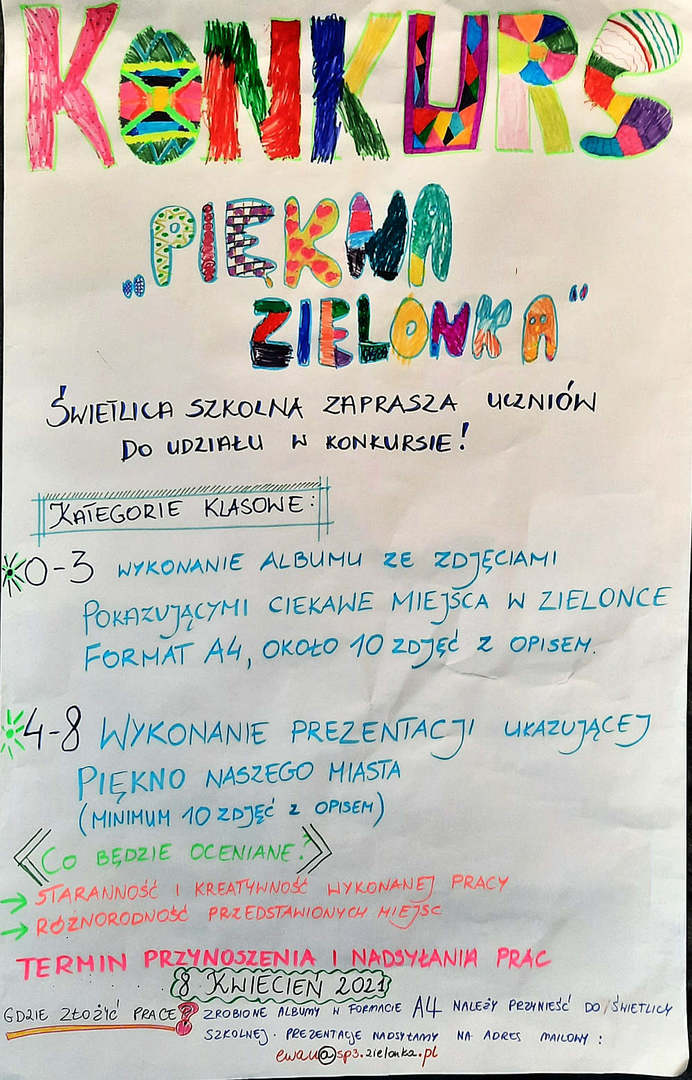 KONKURS
„PIĘKNA
ZIELONKA"
ŚWIETLICA SZKOLNA ZAPRASZA UCZNIÓW
DO UDZIAŁU W KONKURSIE!
KATEGORIE KLASOWE:
0-3 WYKONANIE ALBUMU ZE ZDJĘCIAMI
POKAZUJĄCYMI CIEKAWE MIEJSCA W ZIELONCE
FORMAT A4, OKOŁO 10 ZDJĘĆ Z OPISEM.
4-8 WYKONANIE PREZENTACJI UKAZUJĄCEJ
PIĘKNO NASZEGO MIASTA
(MINIMUM 10 ZDJĘĆ Z OPISEM)
CO BĘDZIE OCENIANE?
→ STARANNOŚĆ I KREATYWNOŚĆ WYKONANEJ PRACY
→ RÓŻNORODNOŚĆ PRZEDSTAWIONYCH MIEJSC
TERMIN PRZYNOSZENIA I NADSYŁANIA PRAC
8 KWIECIEŃ 2021
GDZIE ZŁOŻYĆ PRACE? ZROBIONE ALBUMY W FORMACIE A4 NALEŻY PRZYNIEŚĆ DO ŚWIETLICY
SZKOLNEJ. PREZENTACJE NADSYŁAMY NA ADRES MAILOWY:
ewau@sp3.zielonka.pl